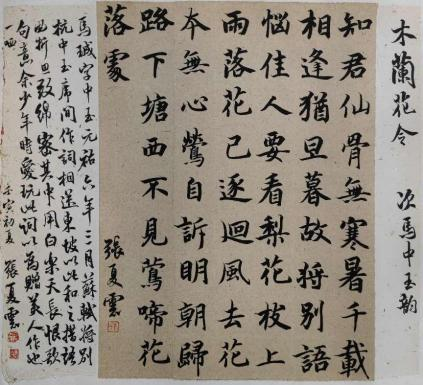 木蘭花令 次馬中玉韵
知君仙骨無寒暑千載
相逢猶旦暮故將別語
惱佳人要看梨花枝上
雨落花已逐迴風去花
本無心鶯自訴明朝歸
路下塘西不見鶯啼花
落處
張夏雲
馬瑊字中玉元祐六年三月蘇軾將別
杭中玉席間作詞相送東坡以此和之措語
曲折且致綿密其中用白樂天長恨歌
句意余少年時愛玩此詞以為贈美人作也
一哂 壬寅初夏 張夏雲